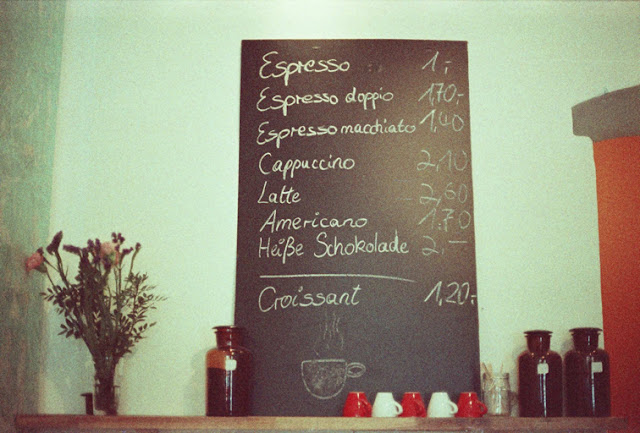 Espresso 1,-
Espresso doppio 1,70,-
Espresso macchiato 1,40
Cappuccino 2,10
Latte 2,60
Americano 1,70
Heiße Schokolade 2,-
Croissant 1,20,-